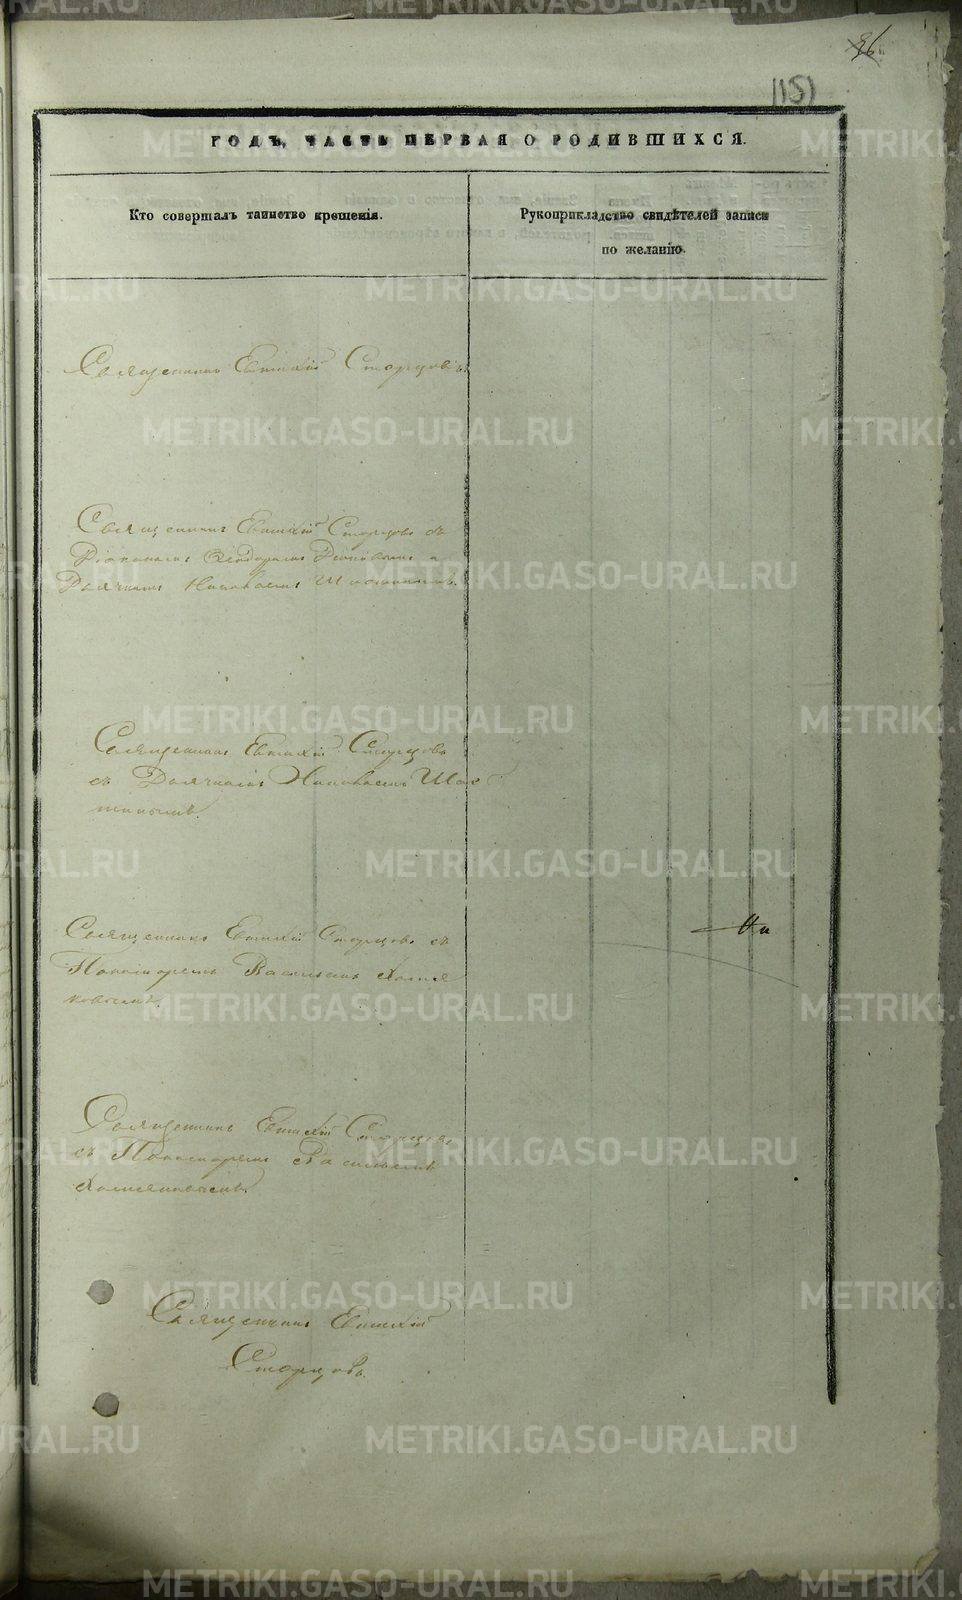 96
(15)
ГОДЪ, ЧАСТЬ ПЕРВАЯ О РОДИВШИХСЯ.
Кто совершалъ таинство крещенія.
Рукоприкладство свидѣтелей записи
по желанію.
Священникъ Евтихій Старцовъ
Священникъ Евтихій Старцовъ съ
Діакономъ Ѳеодоромъ и
Дьячкомъ
Священникъ Евтихій Старцовъ
съ Дьячкомъ
Священникъ Евтихій Старцовъ съ
Пономаремъ Василіемъ Хомя
ковымъ.
Священникъ Евтихій Старцовъ
съ Пономаремъ Василіемъ
Хомяковымъ.
Священникъ Евтихій
Старцовъ.
METRIKI.GASO-URAL.RU